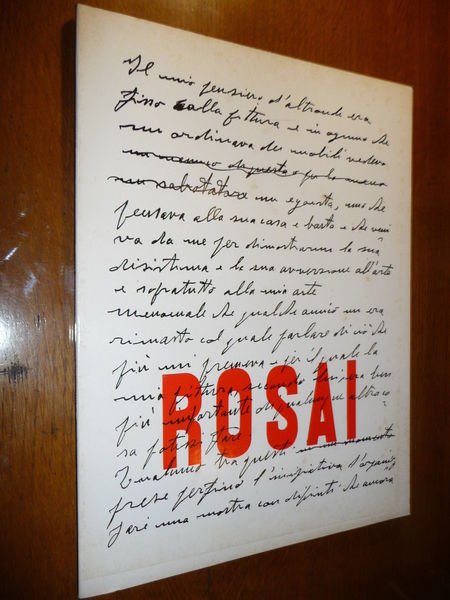 Il mio pensiero d'altronde era
fisso alla pittura e in ognuno che
mi ordinava dei mobili vedevo
un nemico di questa o per lo meno
un egoista, uno che
pensava alla sua casa e basta e che veni
va da me per dimostrarmi la sua
disistima e la sua avversione all'arte
e sopratutto alla mia arte
Menomale che qualche amico mi era
rimasto col quale parlare di ciò che
più mi premeva e per il quale la
mia pittura secondo
più importante di qualunque altra co
sa potessi fare.
Qualcuno tra questi in un momento
prese perfino l'iniziativa d'organiz
fare una mostra con dipinti che ancora
ROSAI